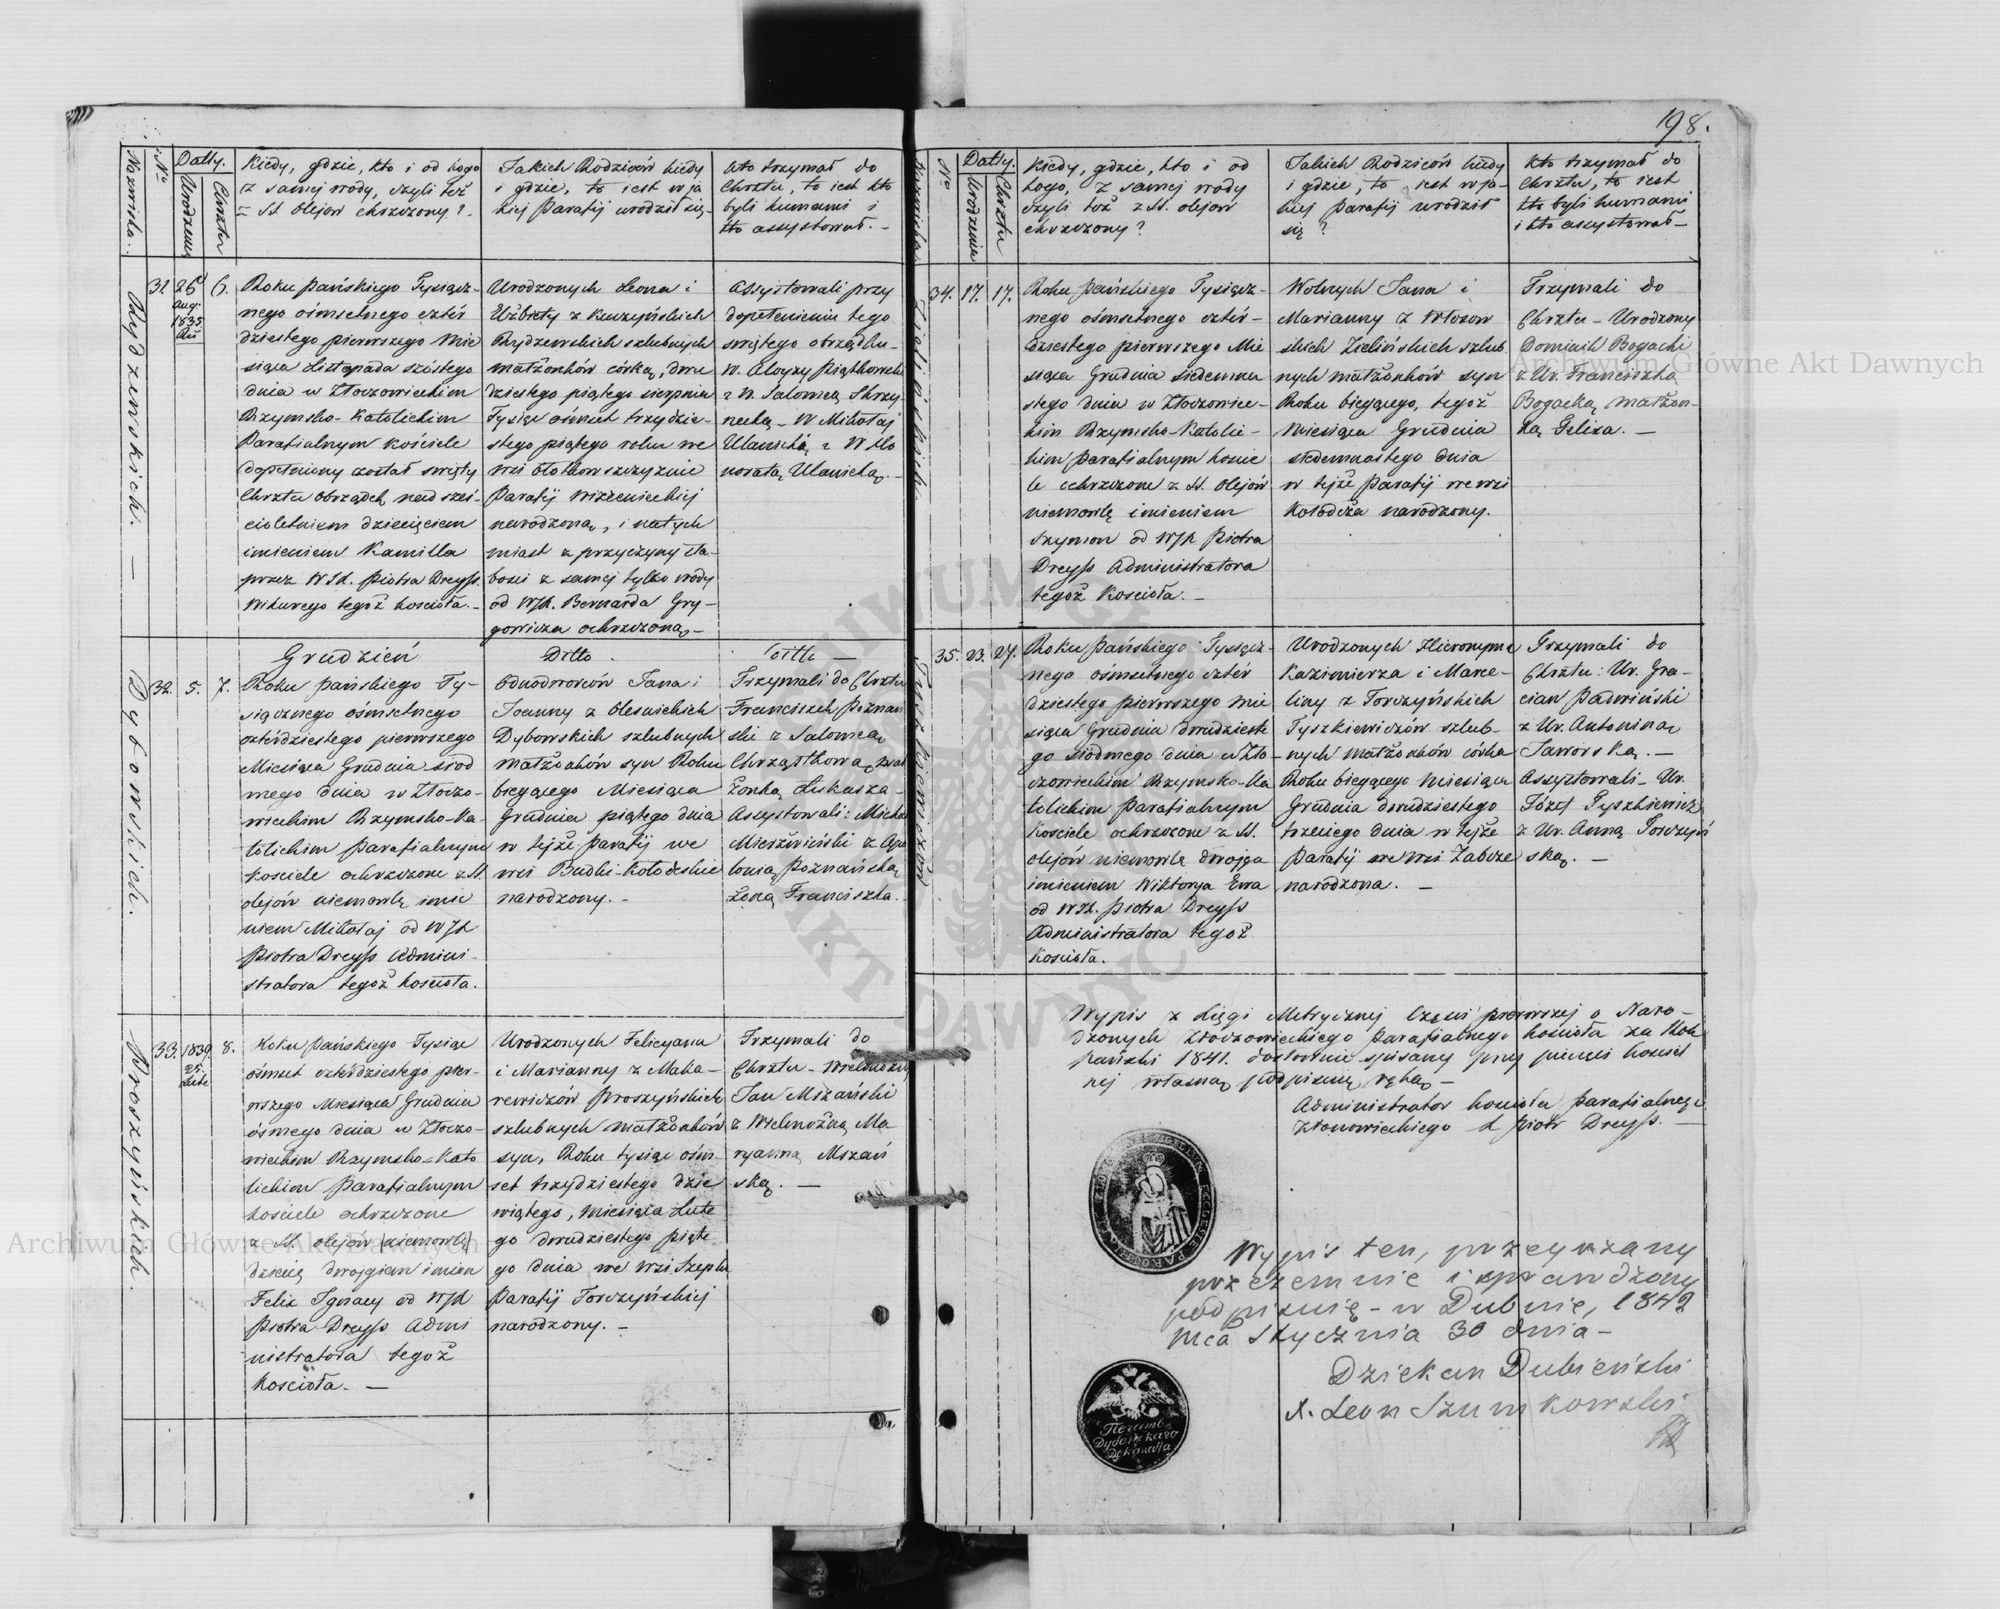 198.
Nazwiska.
No
Datty.
Urodzenia
Chrztu
Kiedy, gdzie, kto i od kogo
z samej wody, czyli też
z SS. Olejow chrzczony?
Jakich Rodziców kiedy
i gdzie, to iest w ja
kiej Parafij urodził się.
kto trzymał do
Chrztu, to iest kto
byli kumami i
kto assystował.
Rydzewskich.
31.
26
Aug.
1835.
6.
Roku Pańskiego Tysiącz-
nego ośmsetnego czter
dziestego pierwszego Mie
siąca Listopada szóstego
dnia w Złoczowieckim
Rzymsko-Katolickim
Parafialnym kosciele
dopełniony został święty
Chrztu obrządek nad sześ-
cioletniem dziecięciem
imieniem Kamilla
przez WJX. Piotra Dreyss
Wikarego tegoż kościoła.
Urodzonych Leona i
Elżbiety z Kuczyńskich
Rydzewskich szlubnych
małżonków córką, dwu
dziestego piątego sierpnia
Tysiąc ośmset trzydzie-
stego piątego roku we
wsi
Parafij
narodzoną, i natych
miast z przyczyny sła-
bosci z samej tylko wody
od WJX. Bernarda Gry-
gowicza ochrzczoną
Assystowali przy
dopełnieniu tego
swiętego obrządku
W. Aloyzy Piątkowski
z W. Salomeą Skrzy-
necką W Mikołaj
Ulanicki z W Ho
noratą Ulanicką.
Dybowskich.
32.
5.
7.
Grudzień
Roku Pańskiego Ty-
siącznego ośmsetnego
czterdziestego pierwszego
Miesiąca Grudnia siod
mego dnia w Złoczo-
wieckim Rzymsko-Ka-
tolickim Parafialnym
Kosciele ochrzczone z SS
olejów niemowlę imie
niem Mikołaj od WJX
Piotra Dreyss Admini-
stratora tegoż koscioła.
Ditto
Odnodworców Jana i
Joanny z Olesnickich
Dybowskich szlubnych
małżonków syn Roku
bieżącego Miesiąca
Grudnia piątego dnia
w tejże Parafij we
wsi Budki-Kołodeskie
narodzony.
Trzymali do Chrztu
Franciszek Poznań
ski z Salomeą
Chrząstkową
żonką Łukasza
Assystowali: Michał
Mierzwiński z Apo
lonią Poznańską
żoną Franciszka.
Proszyńskich.
33.
1839
25.
Lute
8.
Roku Pańskiego Tysiąc
ośmset czterdziestego pier-
wszego Miesiąca Grudnia
ósmego dnia w Złoczo-
wieckim Rzymsko-Kato
lickim Parafialnym
kosciele ochrzczone
z SS. olejow (niemowlę)
dziecię dwojgiem imion
Felix Ignacy od WJX
Piotra Dreyss Admi
nistratora tegoż
Koscioła.
Urodzonych Felicyana
i Marianny z Maka-
rewiczów Proszyńskich
szlubnych małżonków
syn, Roku tysiąc ośm-
set trzydziestego dzie
wiątego, miesiąca Lute
go dwudziestego piąte
go dnia we wsi Szepla
Parafij Torczyńskiej
narodzony.
Trzymali do
Chrztu Wielmożny
Jan Mszański
z Wielmożną Ma
ryanną Mszań
ską.
No
Datty.
Urodzenia
Chrztu
Kiedy, gdzie, kto i od
kogo, z samej wody
czyli też z SS. olejow
chrzczony?
Jakich Rodziców kiedy
i gdzie, to iest w ja-
kiej Parafij urodził
się?
Kto trzymał do
Chrztu, to iest
kto byli kumami
i kto assystował
Zielińskich
34.
17.
17.
Roku Pańskiego Tysiącz-
nego ośmsetnego czter-
dziestego pierwszego Mie
siąca Grudnia siedemna
stego dnia w Złoczowiec-
kim Rzymsko-Katolic-
kim Parafialnym kosciе
le ochrzczone z SS. Olejów
niemowlę imieniem
Szymon od WJX Piotra
Dreyss Administratora
tegoż Koscioła.
Wolnych Jana i
Marianny z Włosow
skich Zielińskich szlub
nych małżonków syn
Roku bieżącego, tegoż
Miesiąca Grudnia
siedemnastego dnia
w tejże Parafij we wsi
Kołodeża narodzony.
Trzymali do
Chrztu Urodzony
Dominik Bogacki
z Ur. Franciszką
Bogacką małżon-
ką Felixa.
Tyszkiewiczów
35.
23.
27.
Roku Pańskiego Tysiącz-
nego ośmsetnego czter
dziestego pierwszego mie
siąca Grudnia dwudzieste
go siódmego dnia w Zło-
czowieckim Rzymsko-Ka
tolickim Parafialnym
Kosciele ochrzczone z SS.
olejów niemowlę dwojga
imieniem Wiktorya Ewa
od WJX. Piotra Dreyss
Administratora tegoż
Koscioła.
Urodzonych Hieronyma
Kazimierza i Marce-
liny z Torczyńskich
Tyszkiewiczów szlub-
nych małżonków córka
Roku bieżącego Miesiąca
Grudnia dwudziestego
trzeciego dnia w tejże
Parafij we wsi Zaborze
narodzona.
Trzymali do
Chrztu: Ur. Gra-
cian Padwiński
z Ur. Antoniną
Jaworską.
Assystowali Ur.
Józef Tyszkiewicz
z Ur. Anną Torczyń
ską.
Wypis z księgi Metrycznej Części pierwszej o Naro-
dzonych Złoczowieckiego Parafialnego kościoła za Rok
Pański 1841. dosłownie spisany przy pieczęci kosciel
nej własną podpisuię ręką
Administrator kosciołu Parafialnego
Złoczowieckiego X Piotr Dreyss.
Wypis ten, przeyrzany
przezemnie i sprawdzony
podpisuię - w Dubnie, 1842
Mca Stycznia 30 dnia
Dziekan Dubieński
X. Leon Szumkowski
Печать
Деканата
Archiwum Główne Akt Dawnych
Archiwum Główne Akt Dawnych